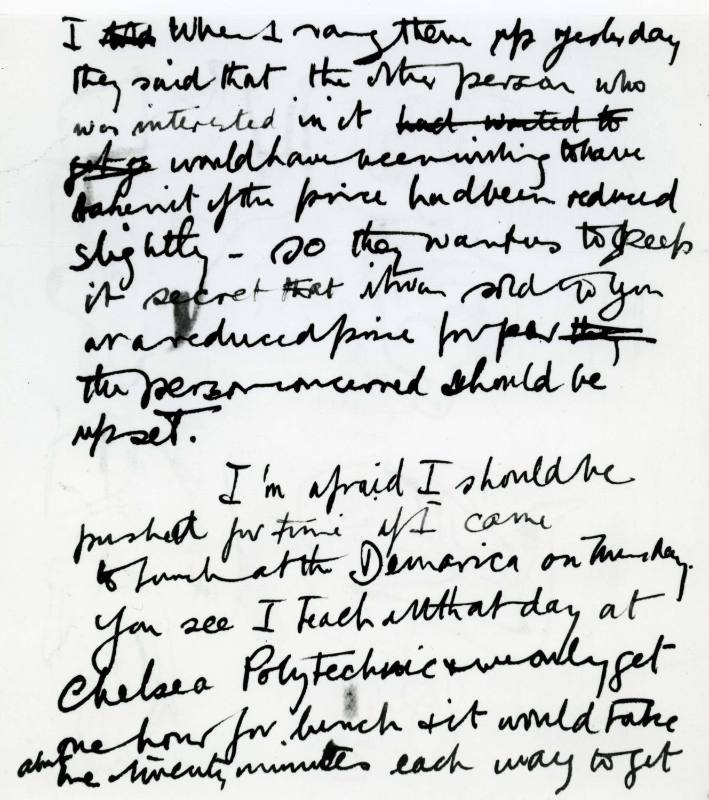 I told When I rang them up yesterday
they said that the other person who
was interested in it had wanted to
get go would have been willing to have
taken it if the price had been reduced
slightly – so they want us to keep
it secret that it was sold to you
at a reduced price for fear they
the person concerned should be
upset.
I'm afraid I should be
pushed for time if I came
to lunch at the Demarica on Thursday.
You see I teach all that day at
Chelsea Polytechnic & we only get
one hour for lunch & it would take
about me twenty minutes each way to get